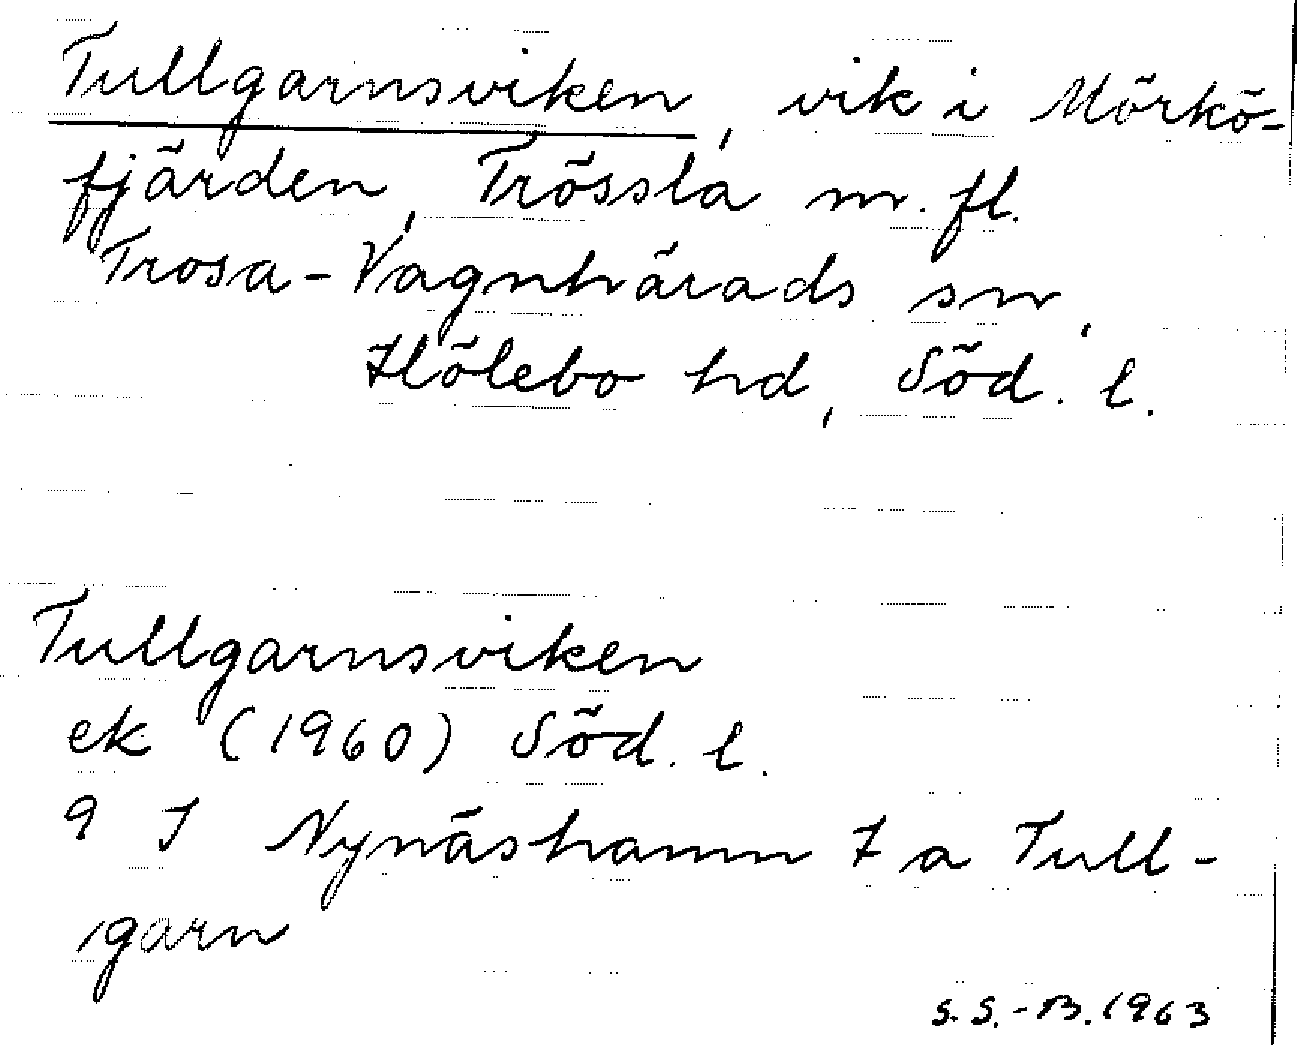 Tullgarnsviken, vik i Mörkö-
fjärden, Trössla m. fl.
Trosa-Vagnhärads sn,
Hölebo hd, Söd. l.
Tullgarnsviken
ek (1960) Söd. l.
9 I Nynäshamn 7 a Tull-
garn
S. S.-B. 1963